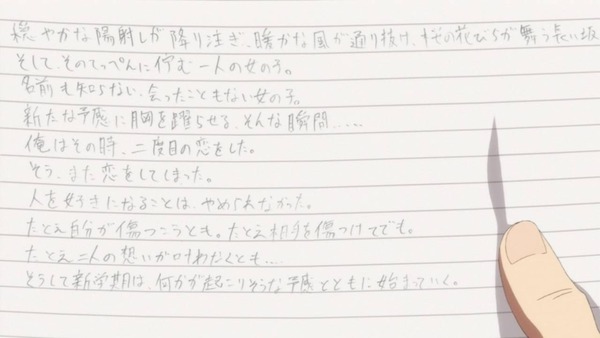 穏やかな陽射しが降り注ぎ、暖かな風が通り抜け、桜の花びらが舞う長い坂
そして、そのてっぺんに佇む一人の女の子。
名前も知らない、会ったこともない女の子。
新たな予感に胸を躍らせる、そんな瞬間……
俺はその時、二度目の恋をした。
そう、また恋をしてしまった。
人を好きになることは、やめられなかった。
たとえ自分が傷つこうとも。たとえ相手を傷つけてでも。
たとえ二人の想いが叶わなくとも….
そうして新学期は、何かが起こりそうな予感とともに始まっていく。